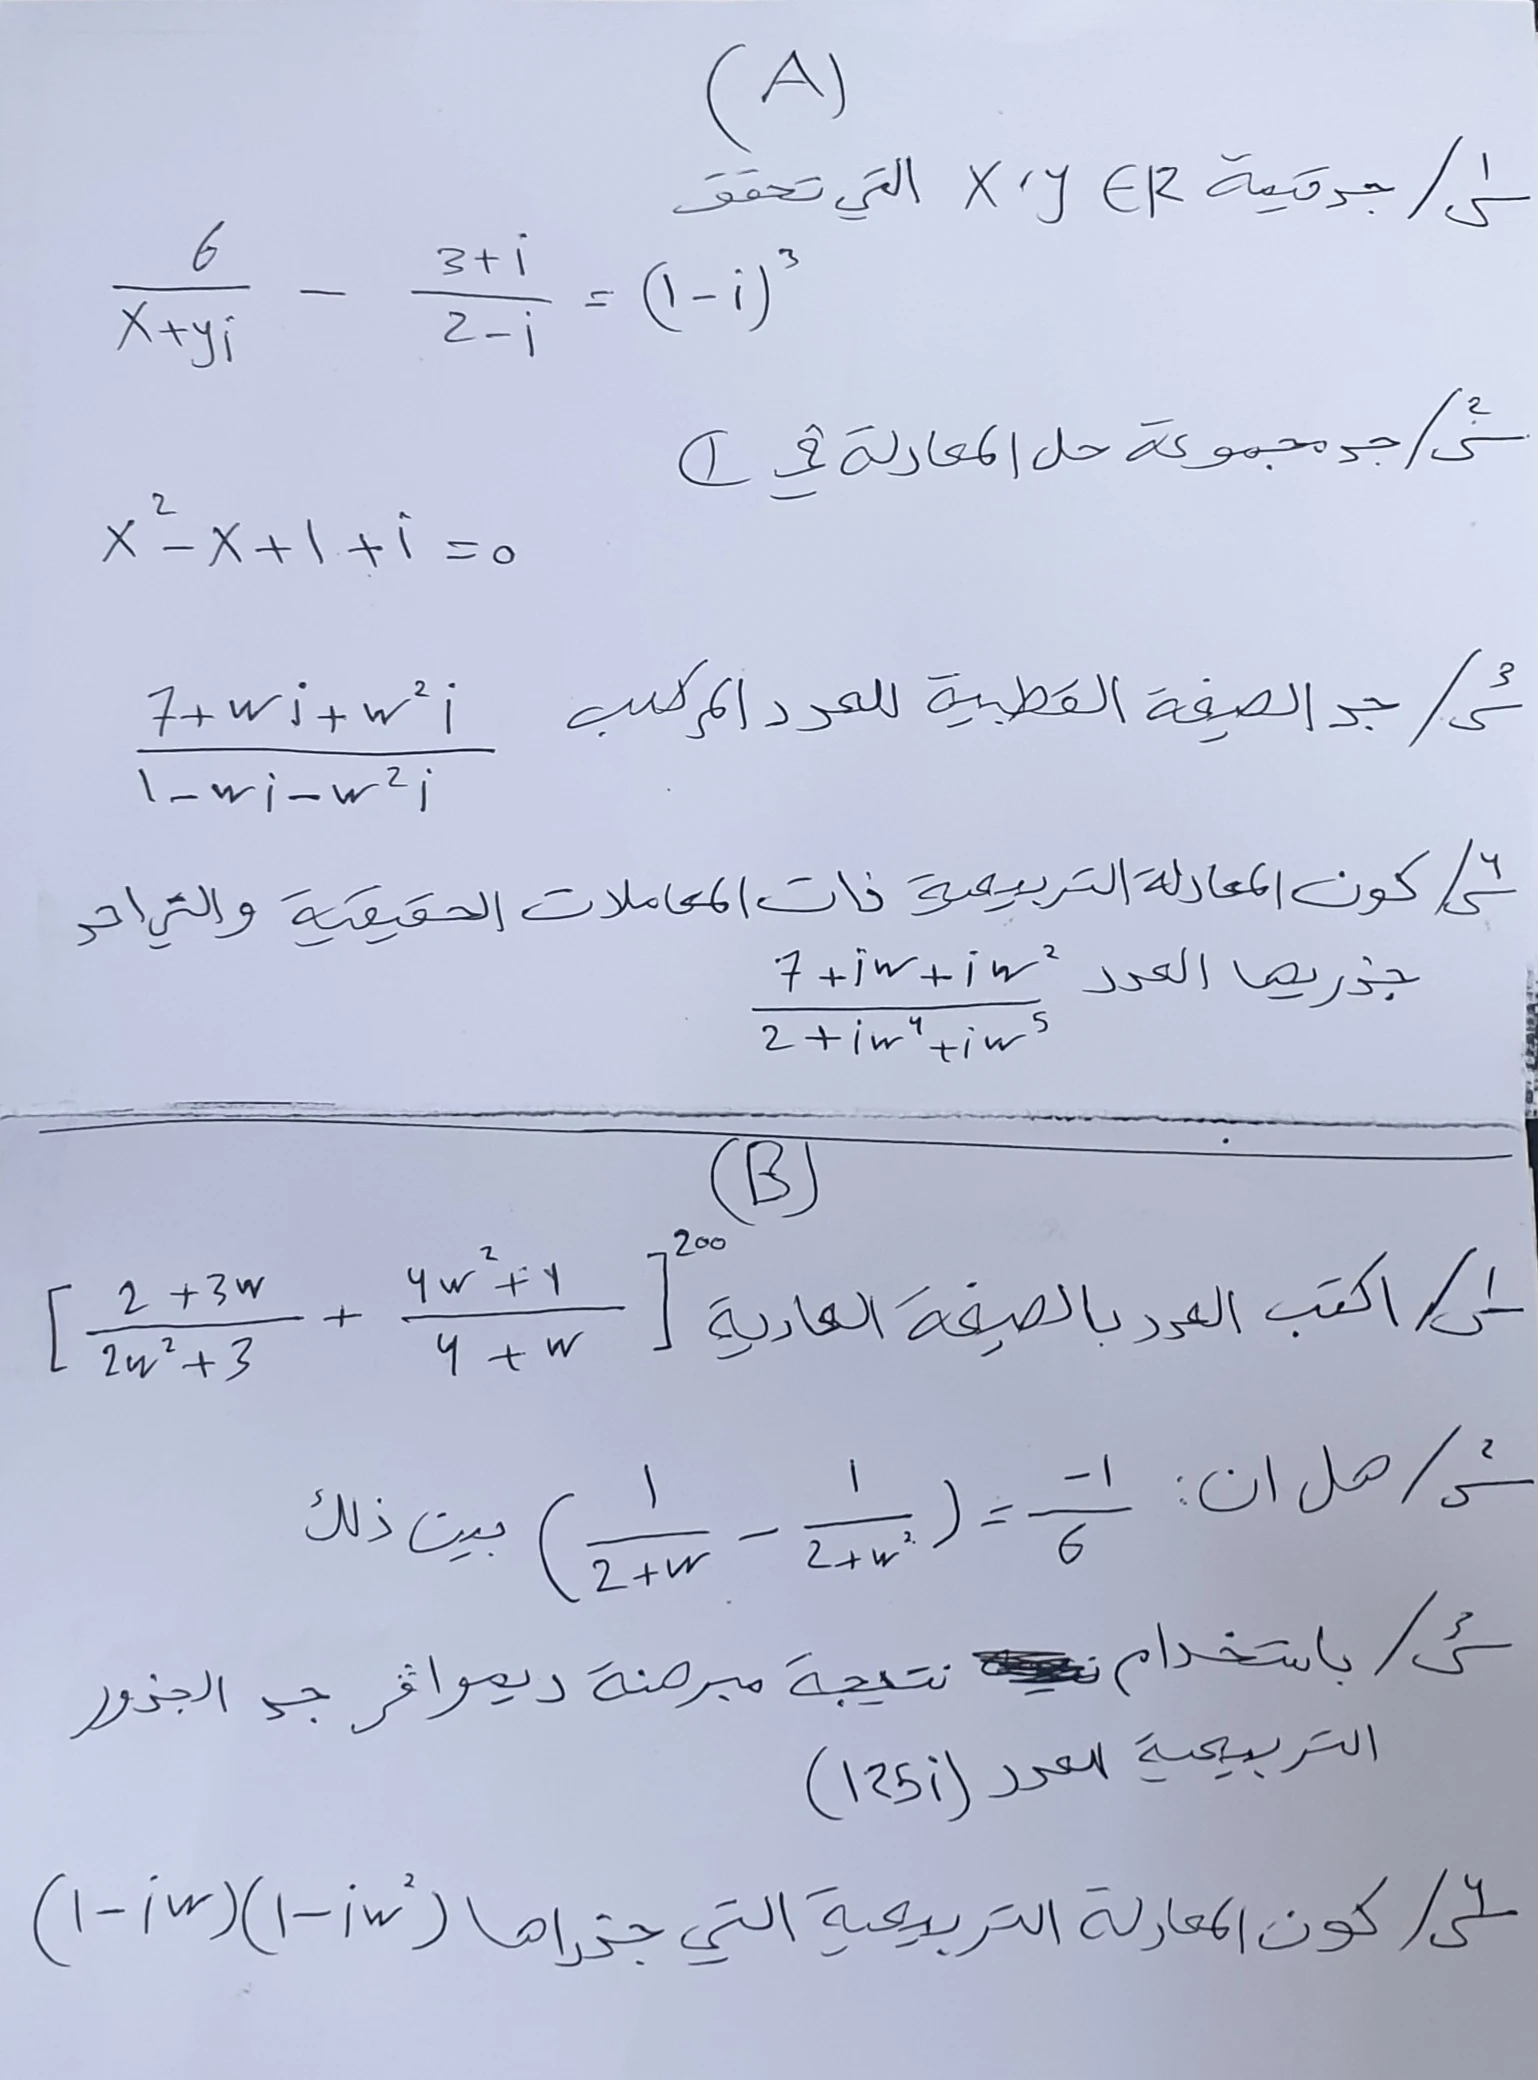 (A)
س1/ جد قيمة x، y ∈ R التي تحقق
6/(x+yi) - (3+i)/(2-i) = (1-i)³
س2/ جد مجموعة حل المعادلة في ℂ
x² - x + 1 + i = 0
س3/ جد الصيغة القطبية للعدد المركب (7+wi+w²i)/(1-wi-w²i)
س4/ كون المعادلة التربيعية ذات المعاملات الحقيقية والتي احد
جذريها العدد (7+iw+iw²)/(2+iw⁴+iw⁵)
(B)
س1/ اكتب العدد بالصيغة العادية [(2+3w)/(2w²+3) + (4w²+4)/(4+w)]²⁰⁰
س2/ هل ان: (1/(2+w) - 1/(2+w²)) = -1/6 بين ذلك
س3/ باستخدام نتيجة مبرهنة ديموافر جد الجذور
التربيعية للعدد (125i)
س4/ كون المعادلة التربيعية التي جذراها (1-iw²)(1-iw)